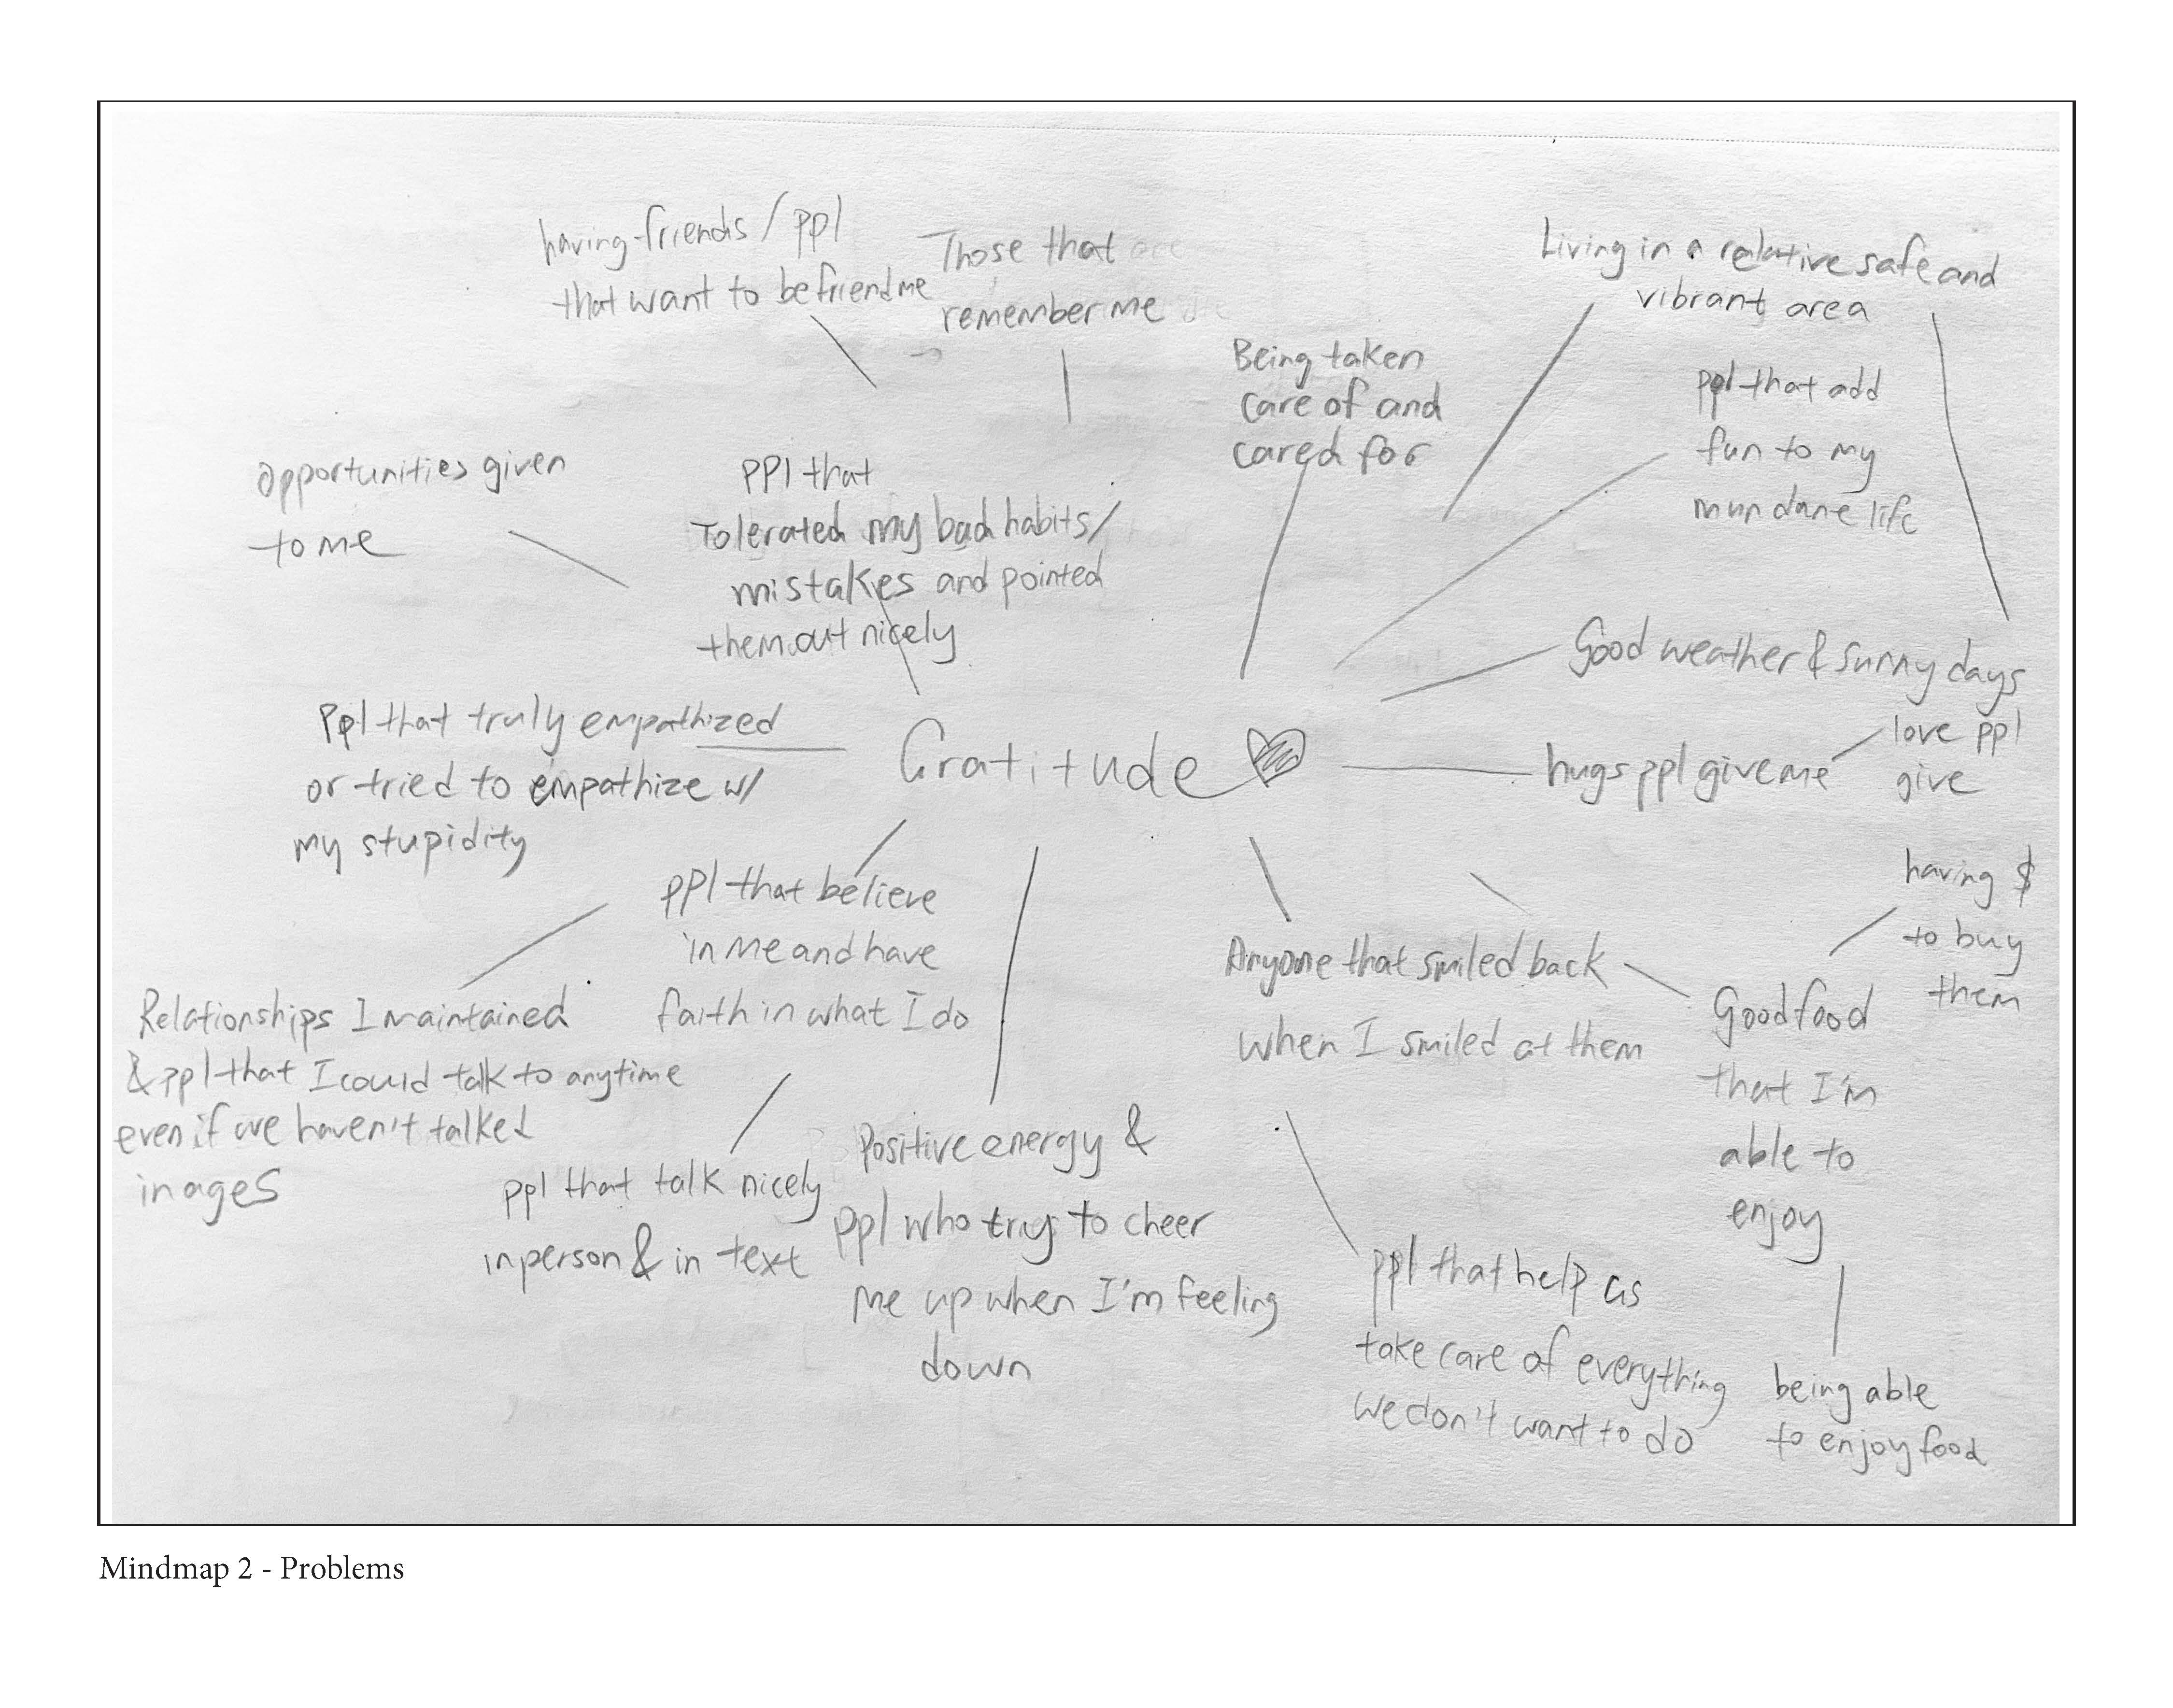 having friends / ppl
that want to befriend me
Those that
remember me
Living in a relative safe and
vibrant area
Being taken
care of and
cared for
ppl that add
fun to my
mundane life
opportunities given
to me
PPl that
Tolerated my bad habits/
mistakes and pointed
them out nicely
Good weather & sunny days
Ppl that truly empathized
or tried to empathize w/
my stupidity
Gratitude
hugs ppl give me
love ppl
give
ppl that believe
in me and have
faith in what I do
having $
to buy
them
Anyone that smiled back
when I smiled at them
Good food
that I'm
able to
enjoy
Relationships I maintained
& ppl that I could talk to anytime
even if we haven't talked
in ages
ppl that talk nicely
in person & in text
Positive energy &
ppl who try to cheer
me up when I'm feeling
down
ppl that help us
take care of everything
we don't want to do
being able
to enjoy food
Mindmap 2 - Problems